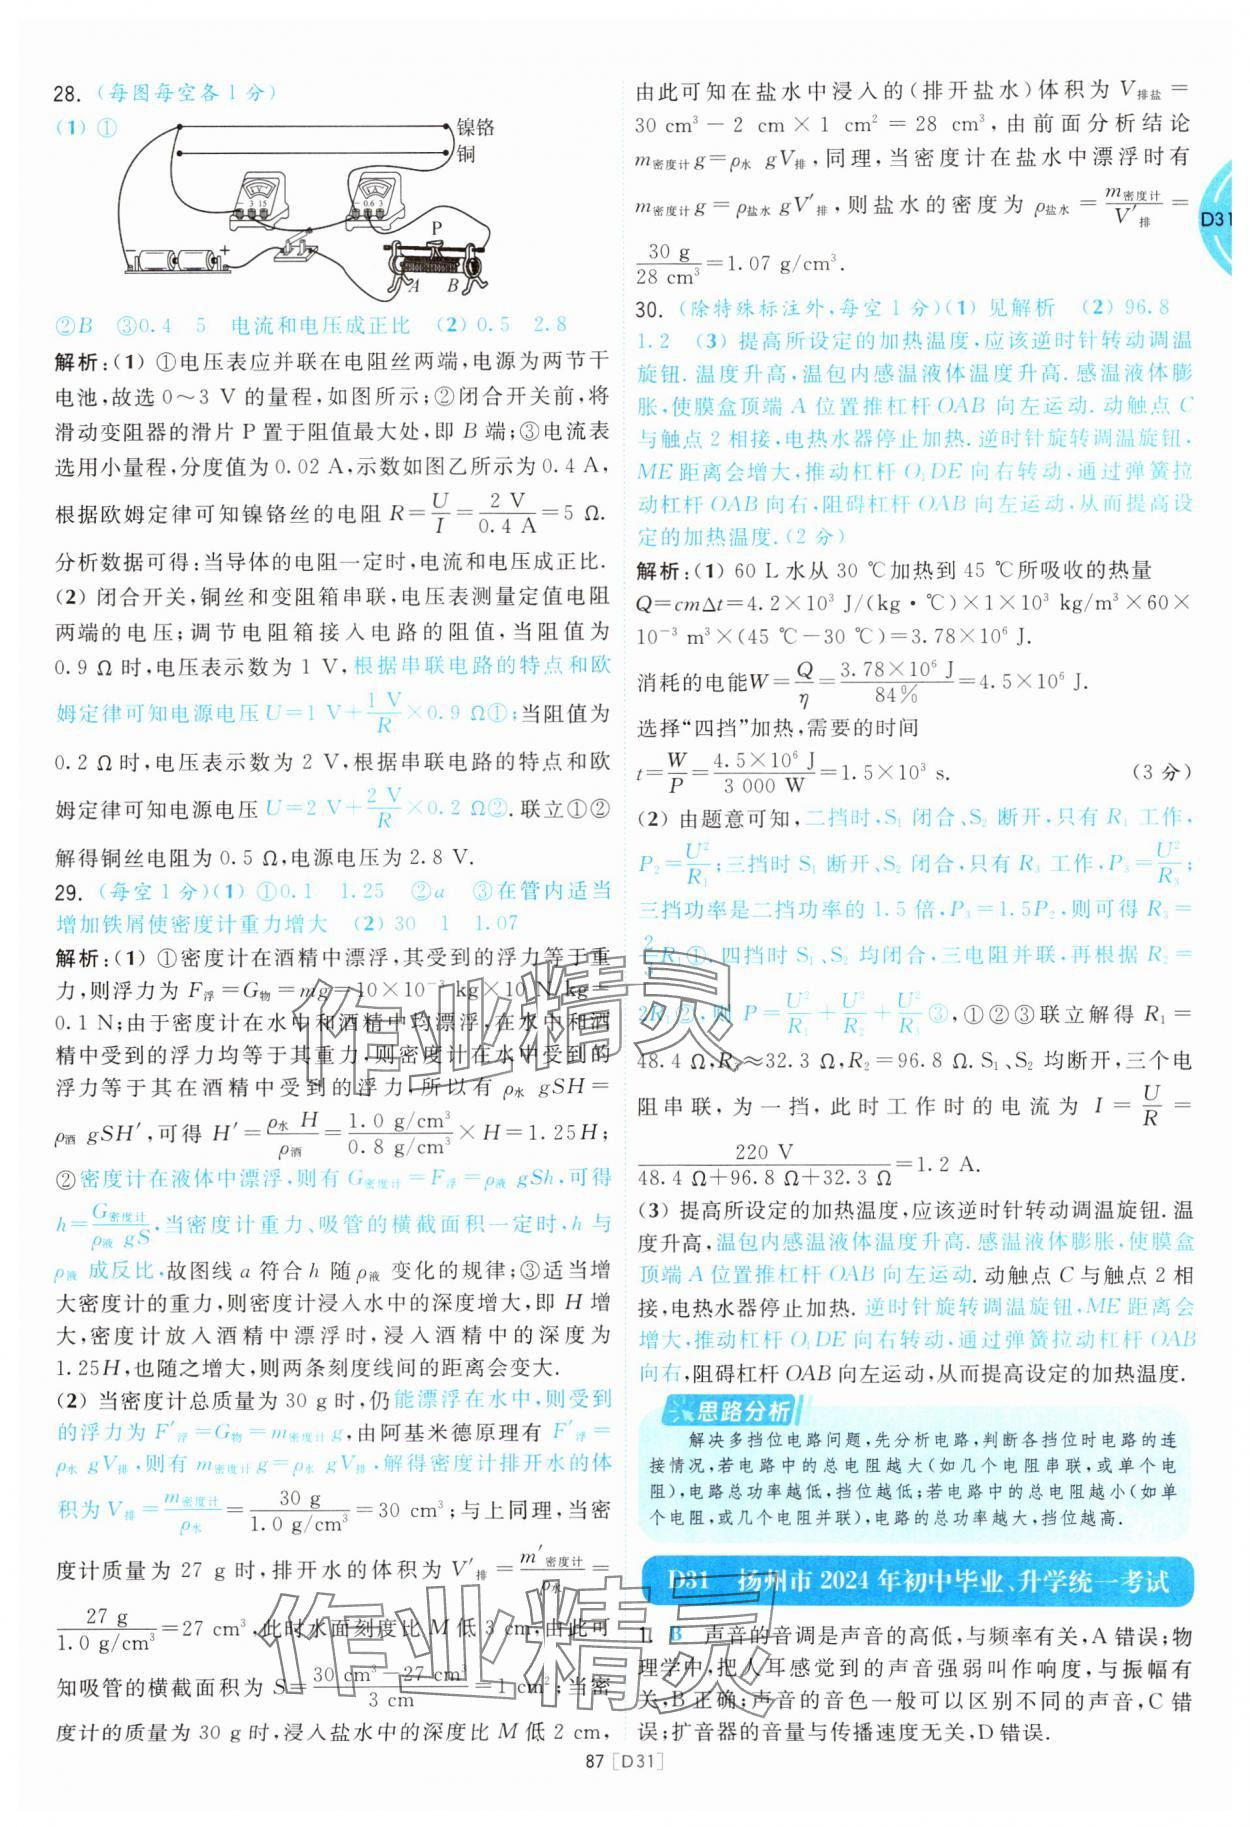 28. (每图每空各1分)
(1) ①
镍铬
铜
V
A
- 3 15
-0.6 3
P
+
A B
②B ③0.4 5 电流和电压成正比 (2) 0.5 2.8
解析:(1) ①电压表应并联在电阻丝两端,电源为两节干
电池,故选 0～3 V 的量程,如图所示;②闭合开关前,将
滑动变阻器的滑片 P 置于阻值最大处,即 B 端;③电流表
选用小量程,分度值为 0.02 A,示数如图乙所示为 0.4 A,
根据欧姆定律可知镍铬丝的电阻 R=U/I=2 V/0.4 A=5 Ω.
分析数据可得:当导体的电阻一定时,电流和电压成正比.
(2) 闭合开关,铜丝和变阻箱串联,电压表测量定值电阻
两端的电压;调节电阻箱接入电路的阻值,当阻值为
0.9 Ω 时,电压表示数为 1 V,根据串联电路的特点和欧
姆定律可知电源电压 U=1 V+1 V/R×0.9 Ω①;当阻值为
0.2 Ω 时,电压表示数为 2 V,根据串联电路的特点和欧
姆定律可知电源电压 U=2 V+2 V/R×0.2 Ω②.联立①②
解得铜丝电阻为 0.5 Ω,电源电压为 2.8 V.
29. (每空1分)(1) ①0.1 1.25 ②a ③在管内适当
增加铁屑使密度计重力增大 (2) 30 1 1.07
解析:(1) ①密度计在酒精中漂浮,其受到的浮力等于重
力,则浮力为 F浮=G物=mg=10×10⁻³ kg×10 N/kg=
0.1 N;由于密度计在水中和酒精中均漂浮,在水中和酒
精中受到的浮力均等于其重力,则密度计在水中受到的
浮力等于其在酒精中受到的浮力,所以有 ρ水 gSH=
ρ酒 gSH′,可得 H′=ρ水 H/ρ酒=1.0 g/cm³/0.8 g/cm³×H=1.25H;
②密度计在液体中漂浮,则有 G密度计=F浮=ρ液 gSh,可得
h=G密度计/ρ液 gS,当密度计重力、吸管的横截面积一定时,h 与
ρ液 成反比,故图线 a 符合 h 随 ρ液 变化的规律;③适当增
大密度计的重力,则密度计浸入水中的深度增大,即 H 增
大,密度计放入酒精中漂浮时,浸入酒精中的深度为
1.25H,也随之增大,则两条刻度线间的距离会变大.
(2) 当密度计总质量为 30 g 时,仍能漂浮在水中,则受到
的浮力为 F′浮=G物=m密度计 g,由阿基米德原理有 F′浮=
ρ水 gV排,则有 m密度计 g=ρ水 gV排,解得密度计排开水的体
积为 V排=m密度计/ρ水=30 g/1.0 g/cm³=30 cm³;与上同理,当密
度计质量为 27 g 时,排开水的体积为 V′排=m′密度计/ρ水=
27 g/1.0 g/cm³=27 cm³,此时水面刻度比 M 低 3 cm,由此可
知吸管的横截面积为 S=30 cm³-27 cm³/3 cm=1 cm²;当密
度计的质量为 30 g 时,浸入盐水中的深度比 M 低 2 cm,
由此可知在盐水中浸入的(排开盐水)体积为 V排盐=
30 cm³-2 cm×1 cm²=28 cm³,由前面分析结论
m密度计 g=ρ水 gV排,同理,当密度计在盐水中漂浮时有
m密度计 g=ρ盐水 gV′排,则盐水的密度为 ρ盐水=m密度计/V′排=
30 g/28 cm³=1.07 g/cm³.
30. (除特殊标注外,每空1分)(1) 见解析 (2) 96.8
1.2 (3) 提高所设定的加热温度,应该逆时针转动调温
旋钮.温度升高,温包内感温液体温度升高.感温液体膨
胀,使膜盒顶端 A 位置推杠杆 OAB 向左运动.动触点 C
与触点 2 相接,电热水器停止加热.逆时针旋转调温旋钮,
ME 距离会增大,推动杠杆 O₁DE 向右转动,通过弹簧拉
动杠杆 OAB 向右,阻碍杠杆 OAB 向左运动,从而提高设
定的加热温度.(2分)
解析:(1) 60 L 水从 30 ℃加热到 45 ℃所吸收的热量
Q=cmΔt=4.2×10³ J/(kg·℃)×1×10³ kg/m³×60×
10⁻³ m³×(45 ℃-30 ℃)=3.78×10⁶ J.
消耗的电能W=Q/η=3.78×10⁶ J/84%=4.5×10⁶ J.
选择“四挡”加热,需要的时间
t=W/P=4.5×10⁶ J/3 000 W=1.5×10³ s. (3分)
(2) 由题意可知,二挡时,S₁ 闭合、S₂ 断开,只有 R₁ 工作,
P₂=U²/R₁;三挡时 S₁ 断开、S₂ 闭合,只有 R₃ 工作,P₃=U²/R₃;
三挡功率是二挡功率的 1.5 倍,P₃=1.5P₂,则可得 R₃=
2/3R₁①,四挡时 S₁、S₂ 均闭合,三电阻并联,再根据 R₂=
2R₁②,则 P=U²/R₁+U²/R₂+U²/R₃③,①②③联立解得 R₁=
48.4 Ω,R₃≈32.3 Ω,R₂=96.8 Ω.S₁、S₂ 均断开,三个电
阻串联,为一挡,此时工作时的电流为 I=U/R=
220 V/48.4 Ω+96.8 Ω+32.3 Ω=1.2 A.
(3) 提高所设定的加热温度,应该逆时针转动调温旋钮.温
度升高,温包内感温液体温度升高.感温液体膨胀,使膜盒
顶端 A 位置推杠杆 OAB 向左运动.动触点 C 与触点 2 相
接,电热水器停止加热.逆时针旋转调温旋钮,ME 距离会
增大,推动杠杆 O₁DE 向右转动,通过弹簧拉动杠杆 OAB
向右,阻碍杠杆 OAB 向左运动,从而提高设定的加热温度.
思路分析
解决多挡位电路问题,先分析电路,判断各挡位时电路的连
接情况,若电路中的总电阻越大(如几个电阻串联,或单个电
阻),电路总功率越低,挡位越低;若电路中的总电阻越小(如单
个电阻,或几个电阻并联),电路的总功率越大,挡位越高.
D31 扬州市 2024 年初中毕业、升学统一考试
1. B 声音的音调是声音的高低,与频率有关,A 错误;物
理学中,把人耳感觉到的声音强弱叫作响度,与振幅有
关,B 正确;声音的音色一般可以区别不同的声音,C 错
误;扩音器的音量与传播速度无关,D 错误.
D31
87 [D31]
作业精灵
作业精灵